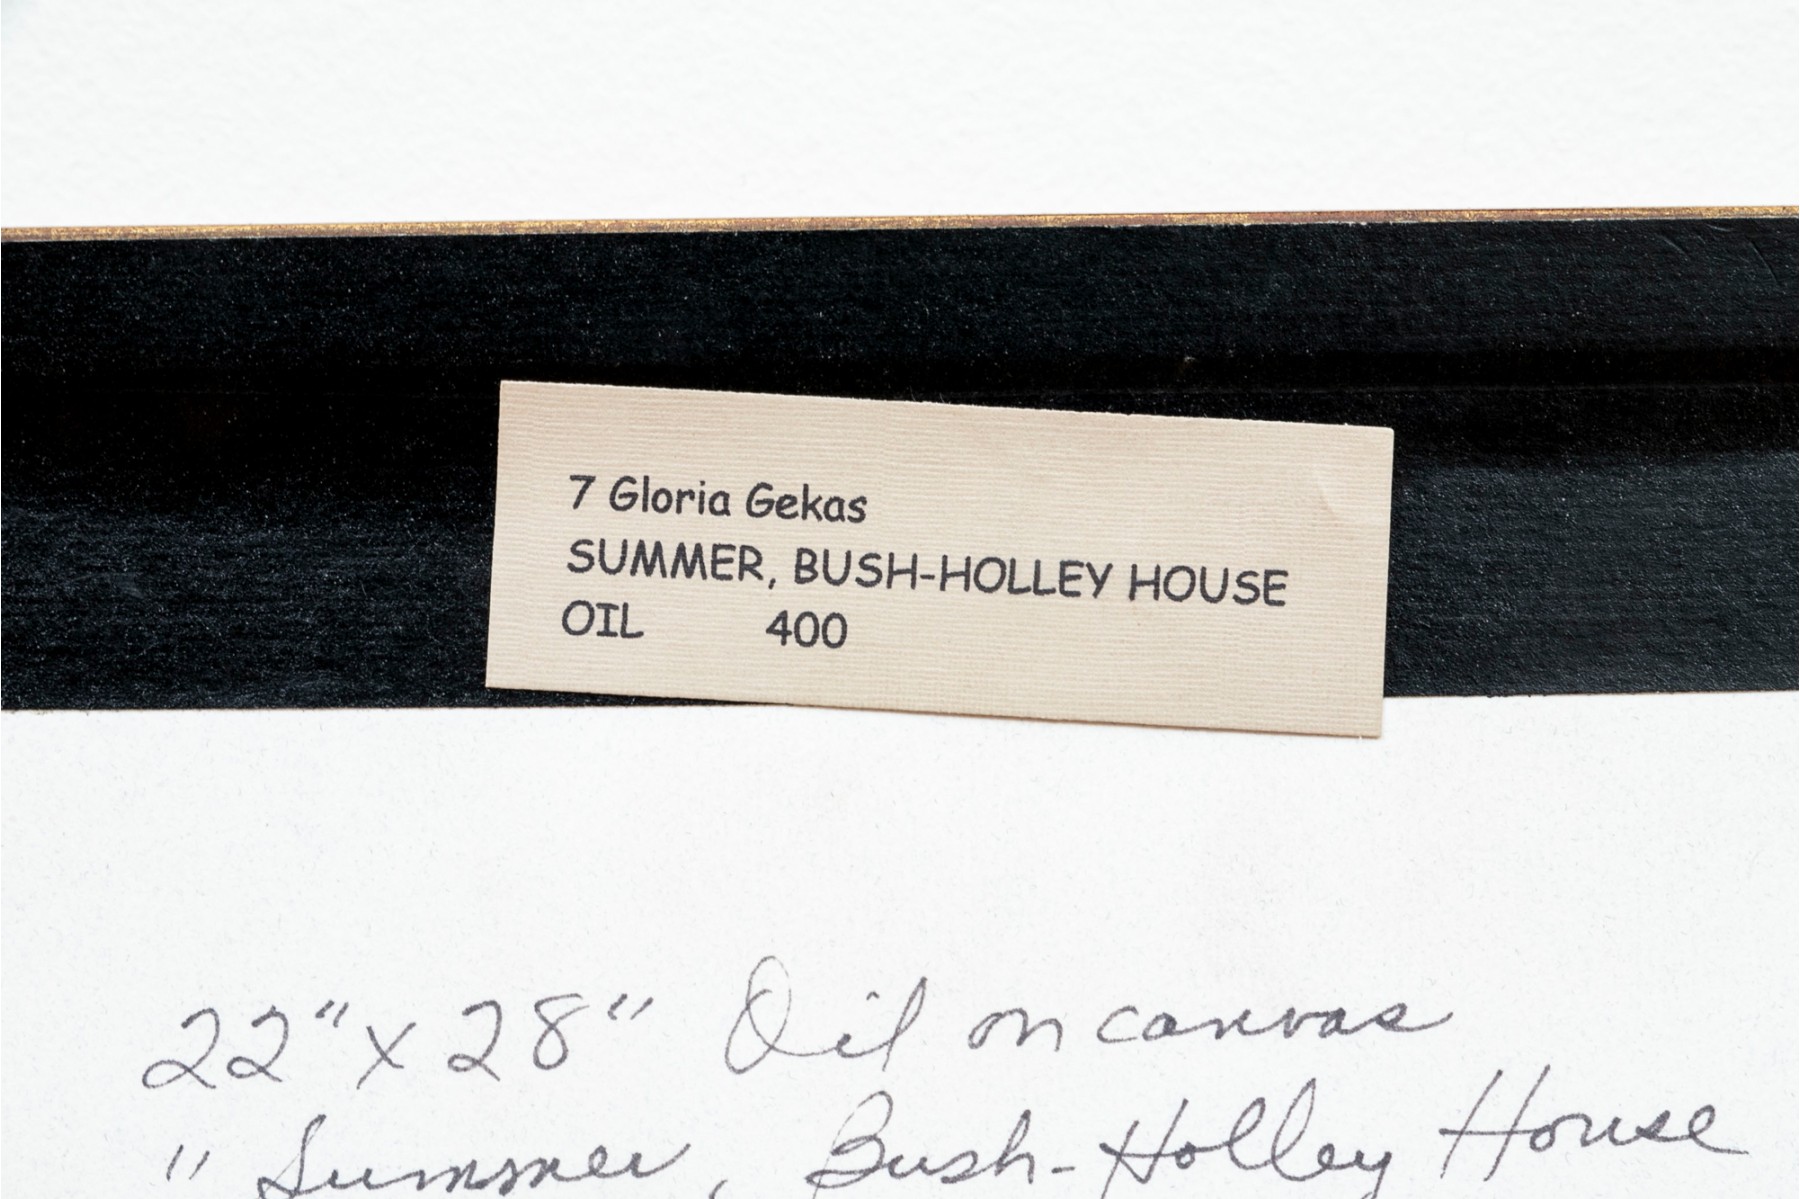 7 Gloria Gekas
SUMMER, BUSH-HOLLEY HOUSE
OIL 400
22" x 28" Oil on canvas
" Summer, Bush-Holley House